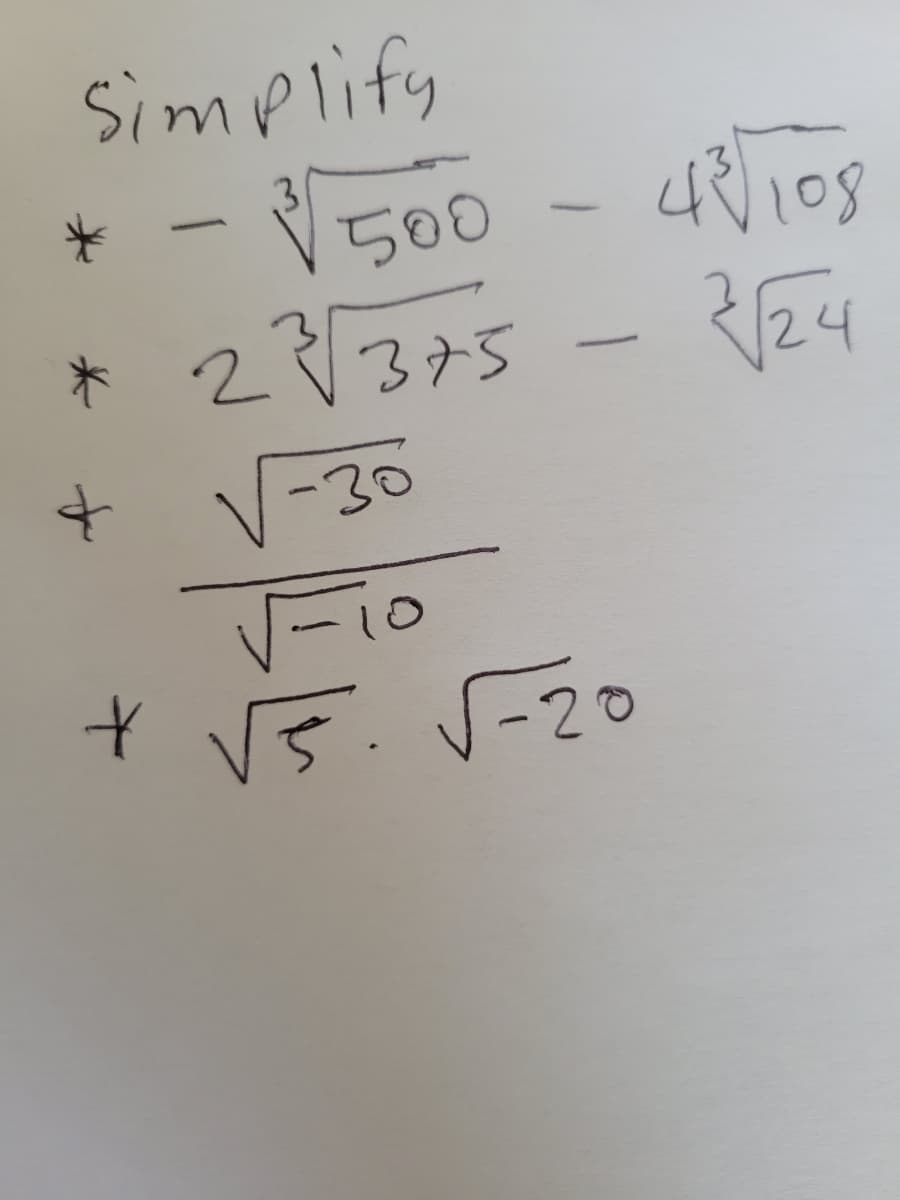 Simplify
* - ∛500 - 4∛108
* 2∛375 - ∛24
+ √-30
√-10
+ √5 . √-20